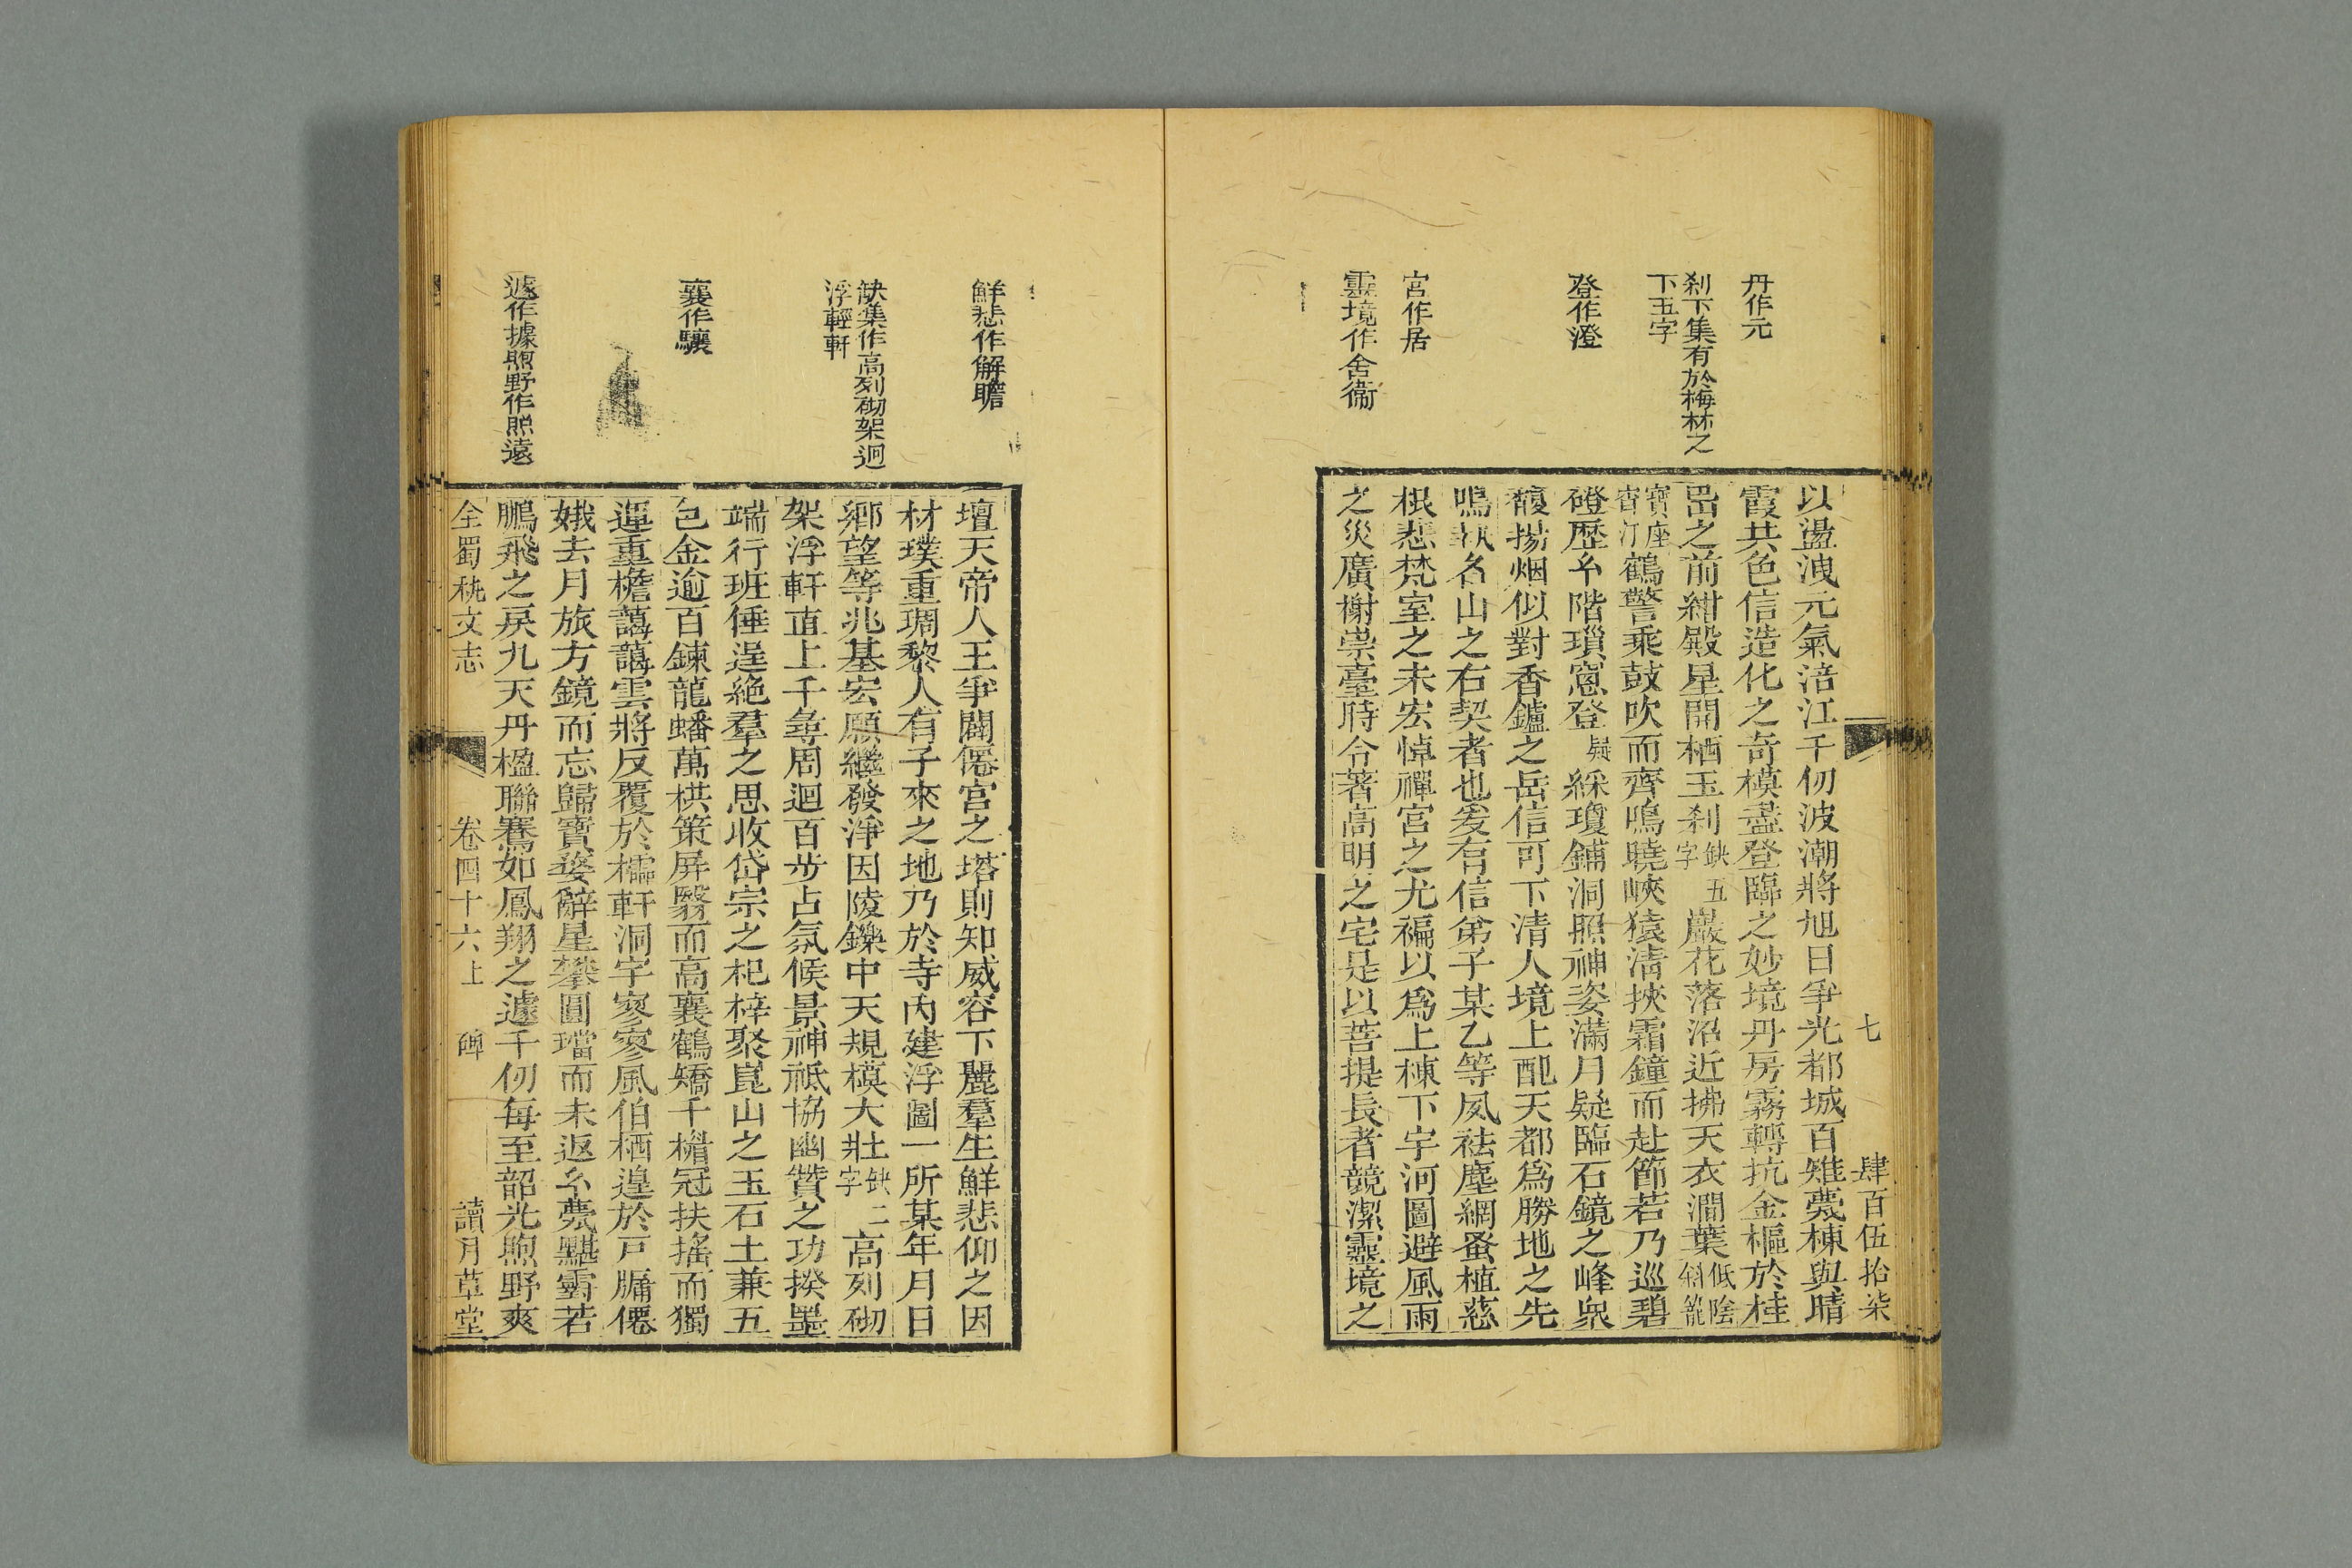 七
肆百伍拾柒
丹作元
刹下集有於梅林之
下五字
登作澄
宮作居
靈境作舍衞
以盪洩元氣涪江千仞波潮將旭日爭光都城百雉甍棟與晴
霞共色信造化之奇模盡登臨之妙境丹房霧轉抗金樞於桂
嵒之前紺殿星開栖玉刹缺五字巖花落沼近拂天衣澗葉低陰斜籠
寶座杳汀鶴警乘鼓吹而齊鳴曉峽猿淸挾霜鐘而赴節若乃巡碧
磴歷幺階瑣窻登疑綵瓊鋪洞照神姿滿月疑臨石鏡之峰衆
馥揚烟似對香鑪之岳信可下清人境上配天都爲勝地之先
鳴執名山之右契者也爰有信弟子某乙等夙祛塵網蚤植慈
根悲梵室之未宏悼禪宮之尤褊以爲上棟下宇河圖避風雨
之災廣榭崇臺時令著高明之宅是以菩提長者競潔靈境之
鮮悲作解瞻
缺集作高列砌架迥
浮輕軒
襄作驤
遽作據煦野作照遠
壇天帝人王爭闢僊宮之塔則知威容下麗羣生鮮悲仰之因
材璞重琱黎人有子來之地乃於寺內建浮圖一所某年月日
鄉望等兆基宏願繼發淨因陵鑠中天規模大壯缺二字高列砌
架浮軒直上千尋周迴百步占氛候景神祇協幽贊之功揆墨
端行班倕逞絶羣之思收岱宗之杞梓聚崑山之玉石土兼五
色金逾百鍊龍蟠萬栱策屏翳而高襄鶴矯千櫩冠扶搖而獨
運重檐藹藹雲將反覆於櫺軒洞宇寥寥風伯栖遑於戸牖僊
娥去月旅方鏡而忘歸寶婺辭星攀圓璫而未返幺甍黮霴若
鵬飛之戾九天丹楹聯騫如鳳翔之遽千仞每至韶光煦野爽
全蜀秇文志
卷四十六上
碑
讀月草堂